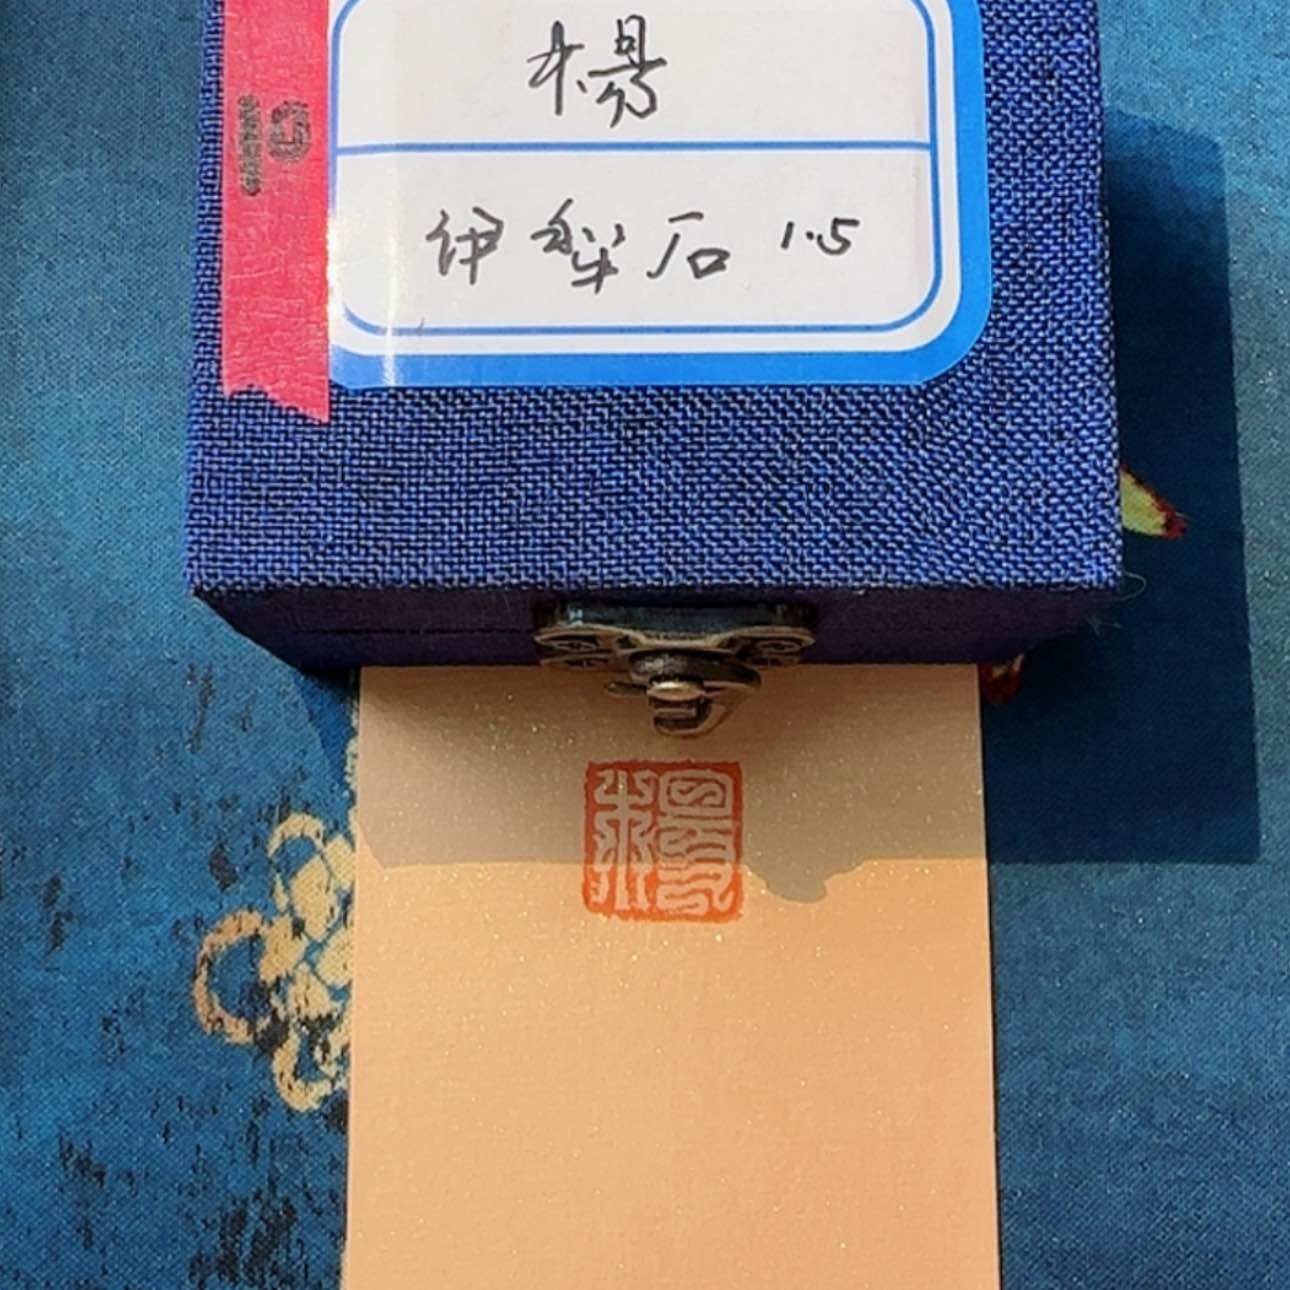 楊
伊犁石 1.5
楊